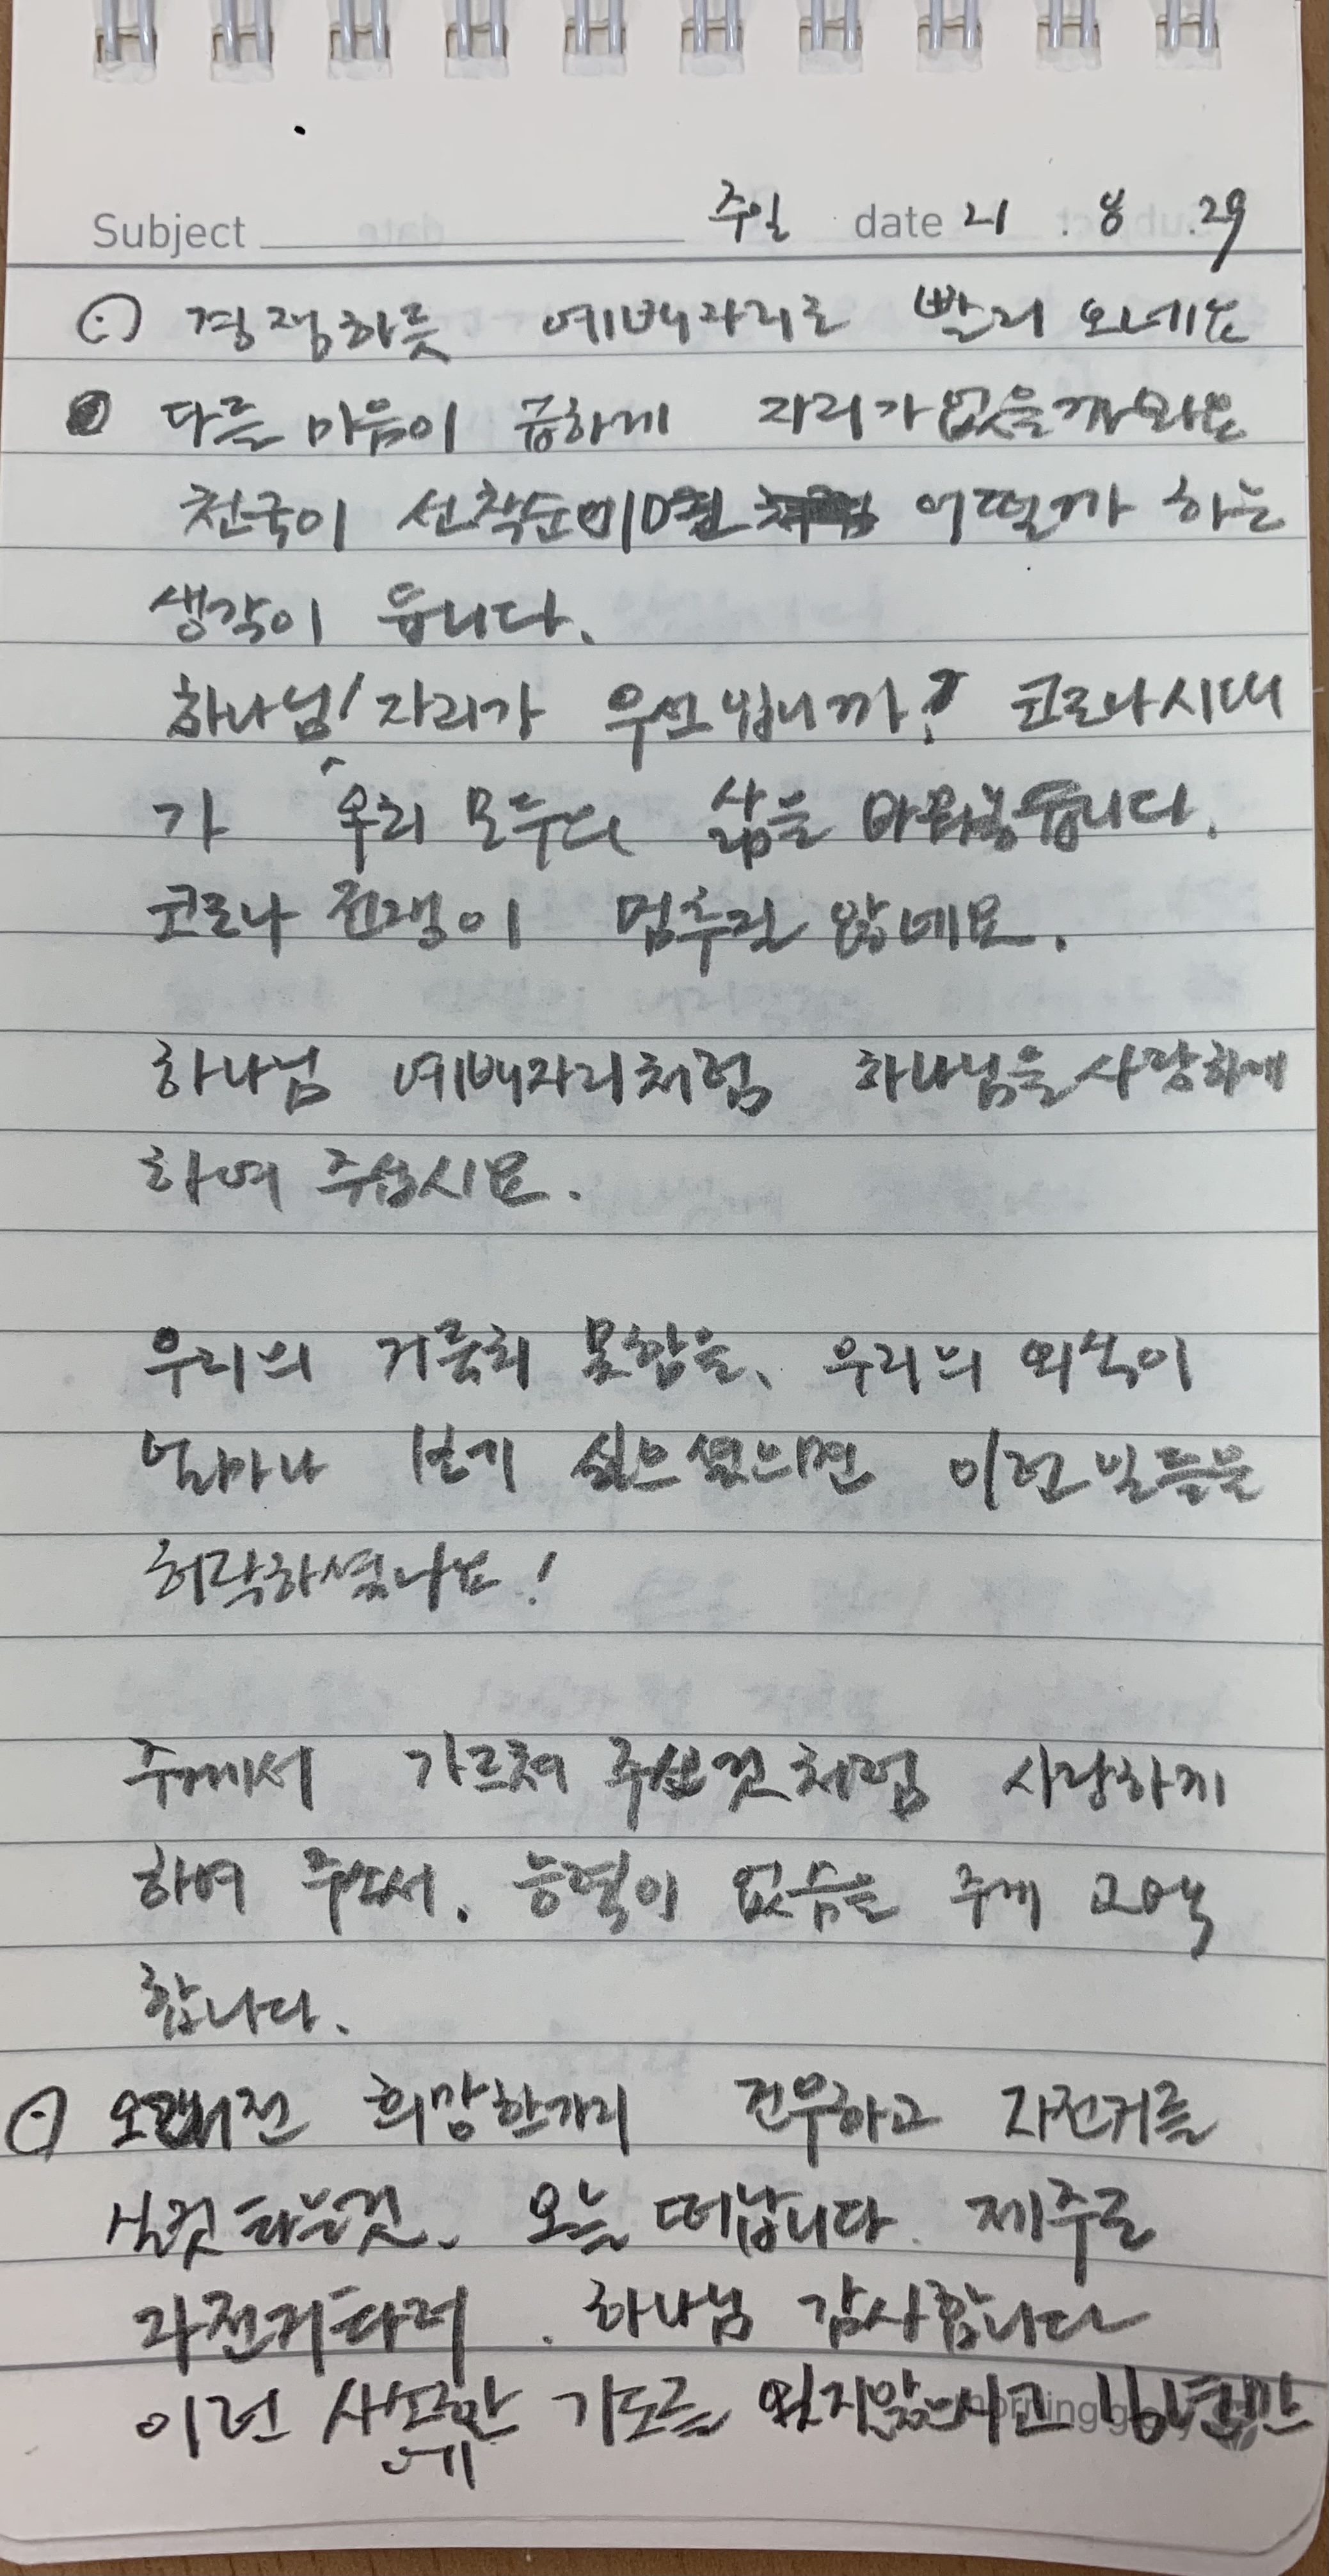 Subject 주일 date 21 . 8 . 29
경쟁하듯 예배자리로 빨리 오네요
다를 마음이 급하게 자리가 없을까봐요
천국이 선착순이면 어떨까 하는
생각이 듭니다.
하나님! 자리가 우선입니까? 코로나시대
가 우리 모두의 삶을 바꿔놓습니다.
코로나 전쟁이 멈추질 않네요.
하나님 예배자리처럼 하나님을 사랑하게
하여 주십시요.
우리의 거룩치 못함을, 우리의 외식이
얼마나 보기 싫으셨으면 이런 일들을
허락하셨나요!
주께서 가르쳐 주신것처럼 사랑하게
하여 주소서. 능력이 없음을 주께 고백
합니다.
오래전 희망한가지 건우하고 자전거를
실컷 타는것. 오늘 떠납니다. 제주로
자전거타러. 하나님 감사합니다
이런 사소한 기도를 잊지않으시고
morning g